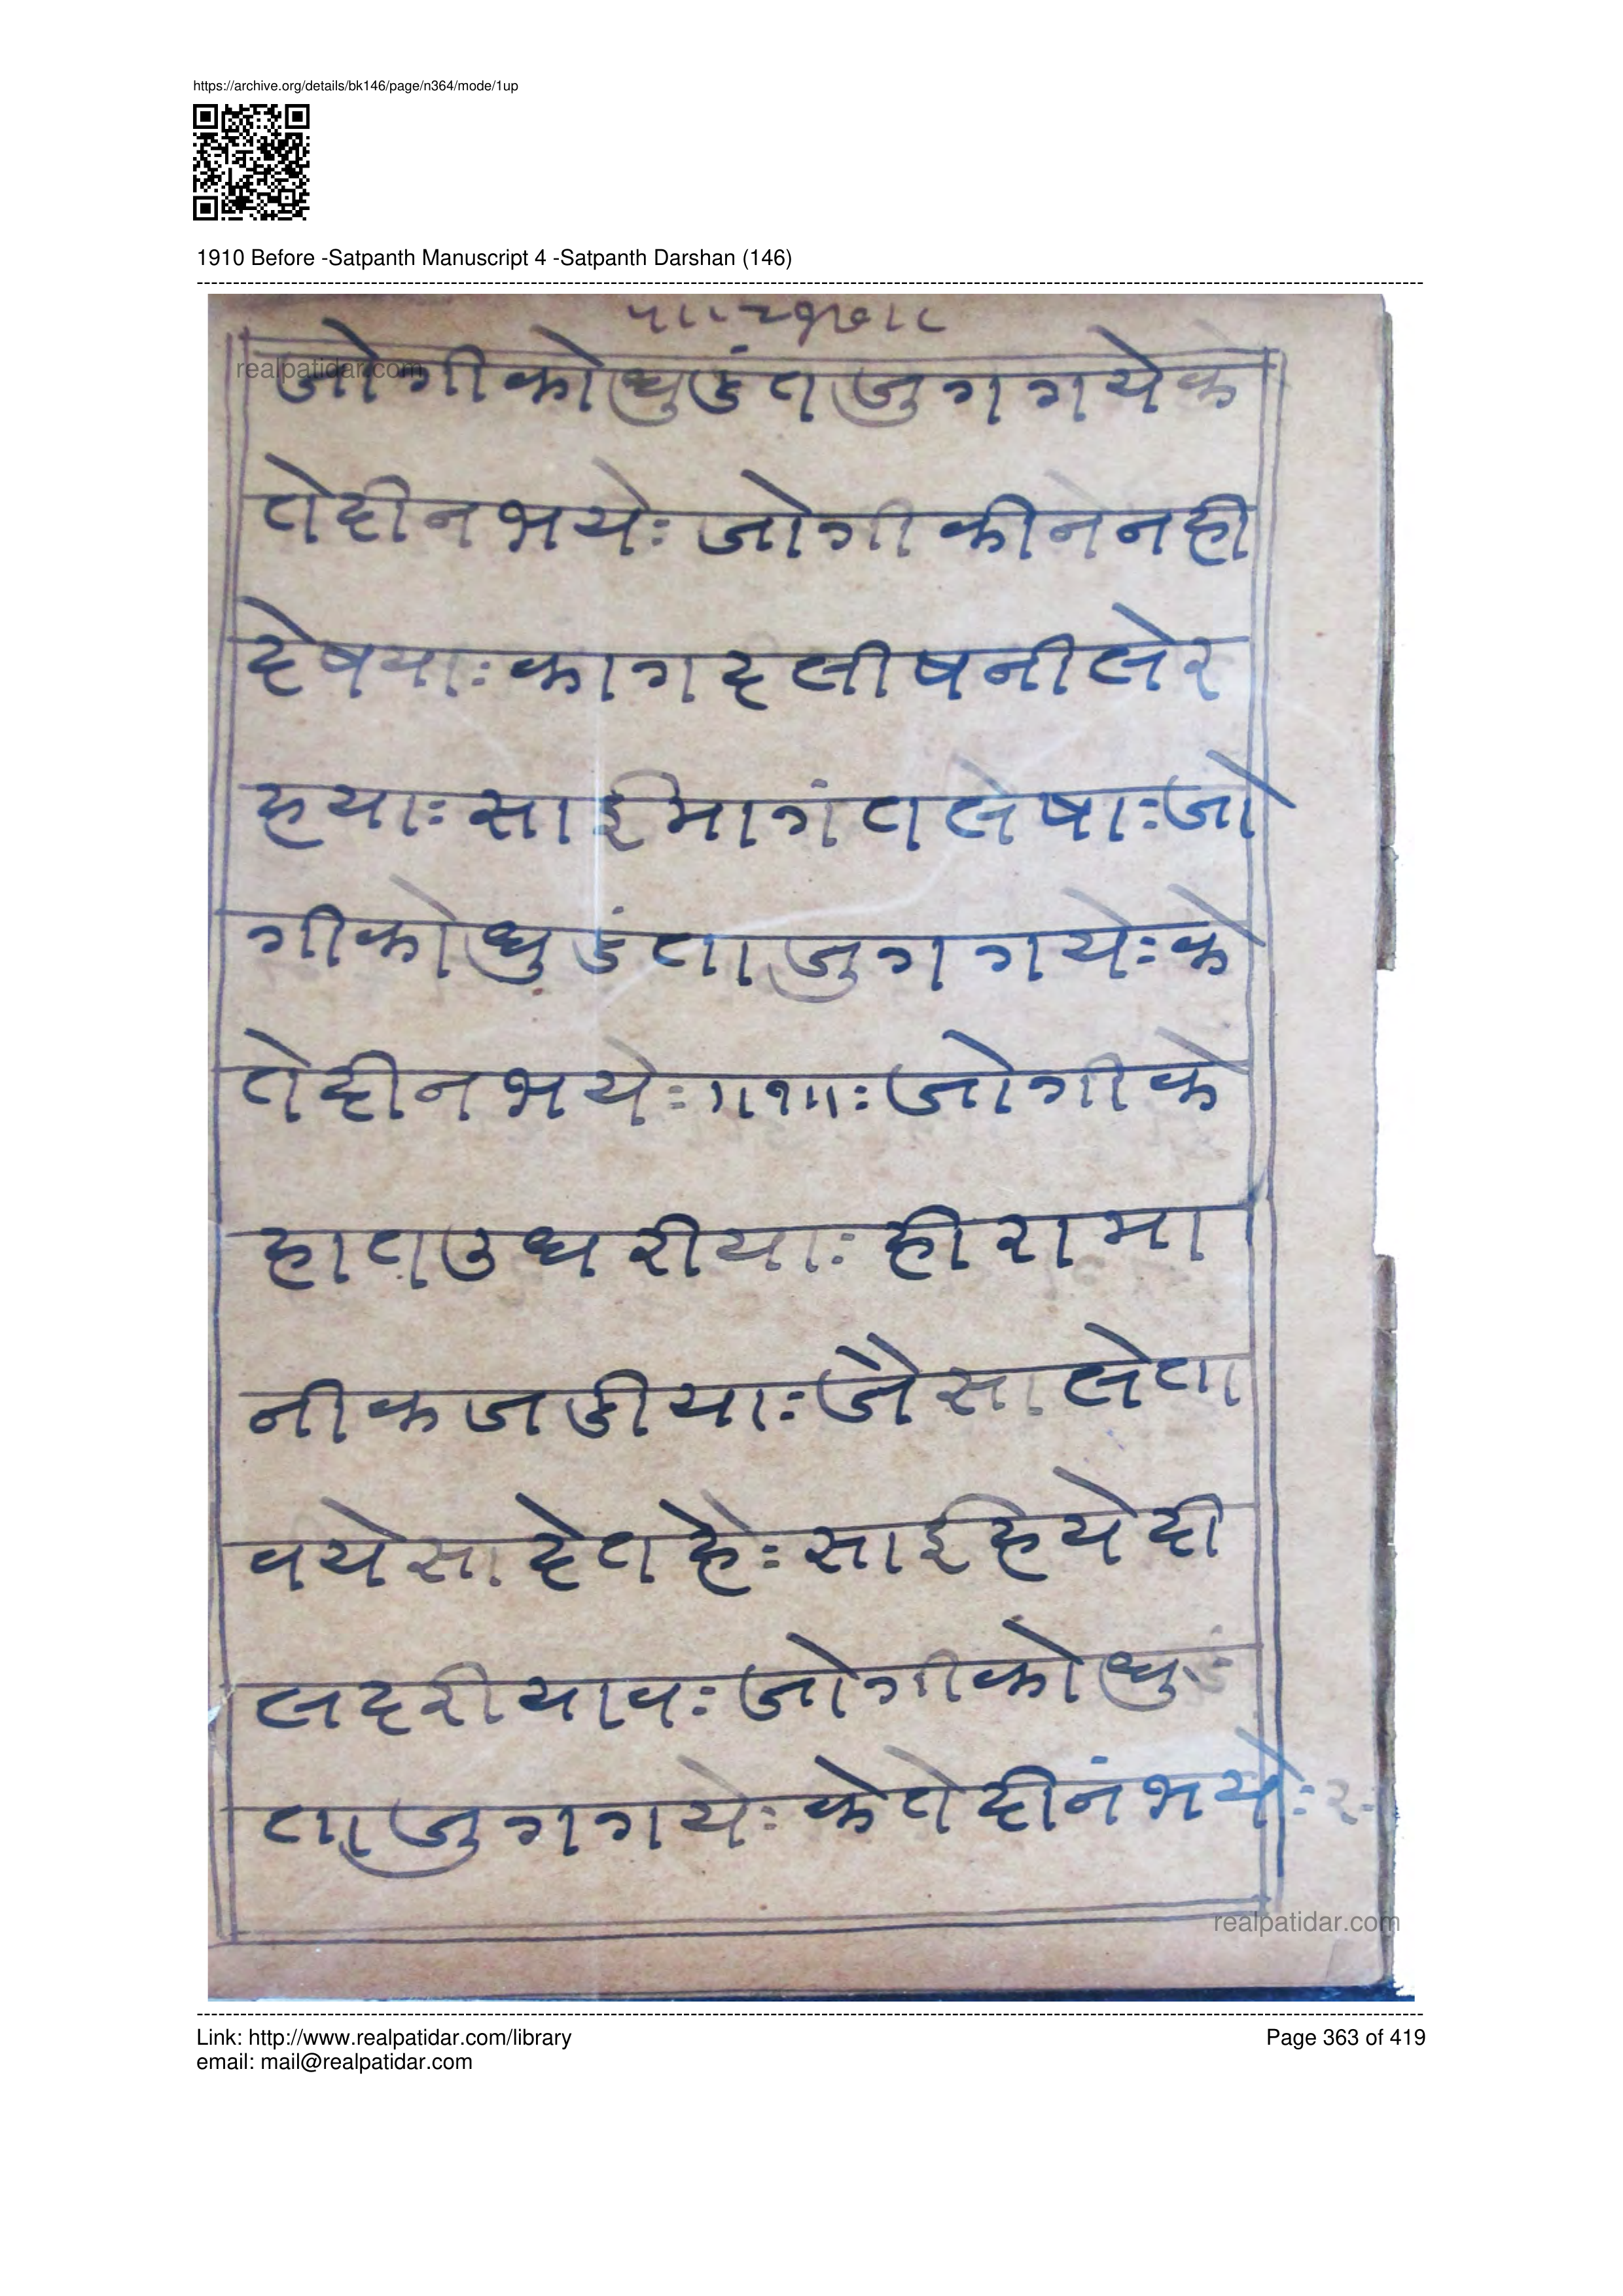 https://archive.org/details/bk146/page/n364/mode/1up
1910 Before -Satpanth Manuscript 4 -Satpanth Darshan (146)
realpatidar.com
जोगीकोधुडंतजुगगयेके
तेदीनभयेः जोगीकीनेनही
देषयाः कागदलीषनीलेर
हयाः साईमागंतलेषाः जो
गीकोधुडंताजुगगयेः के
तेदीनभयेः ॥१॥ः जोगीके
हातउधरीयाः हीरामा
नीकजडीयाः जैसालेता
वयेसादेतहैः साईहयेदी
लदरीयावः जोगीकोधुडं
ताजुगगयेः केतेदीनंभयेः २
realpatidar.com
Link: http://www.realpatidar.com/library
Page 363 of 419
email: mail@realpatidar.com